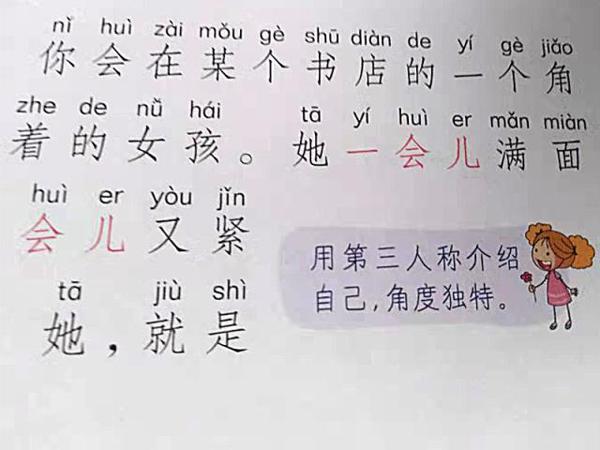 nǐ huì zài mǒu gè shū diàn de yí gè jiǎo
你会在某个书店的一个角
zhe de nǚ hái tā yí huì er mǎn miàn
着的女孩。她一会儿满面
huì er yòu jǐn
会儿又紧
用第三人称介绍
自己,角度独特。
tā jiù shì
她,就是